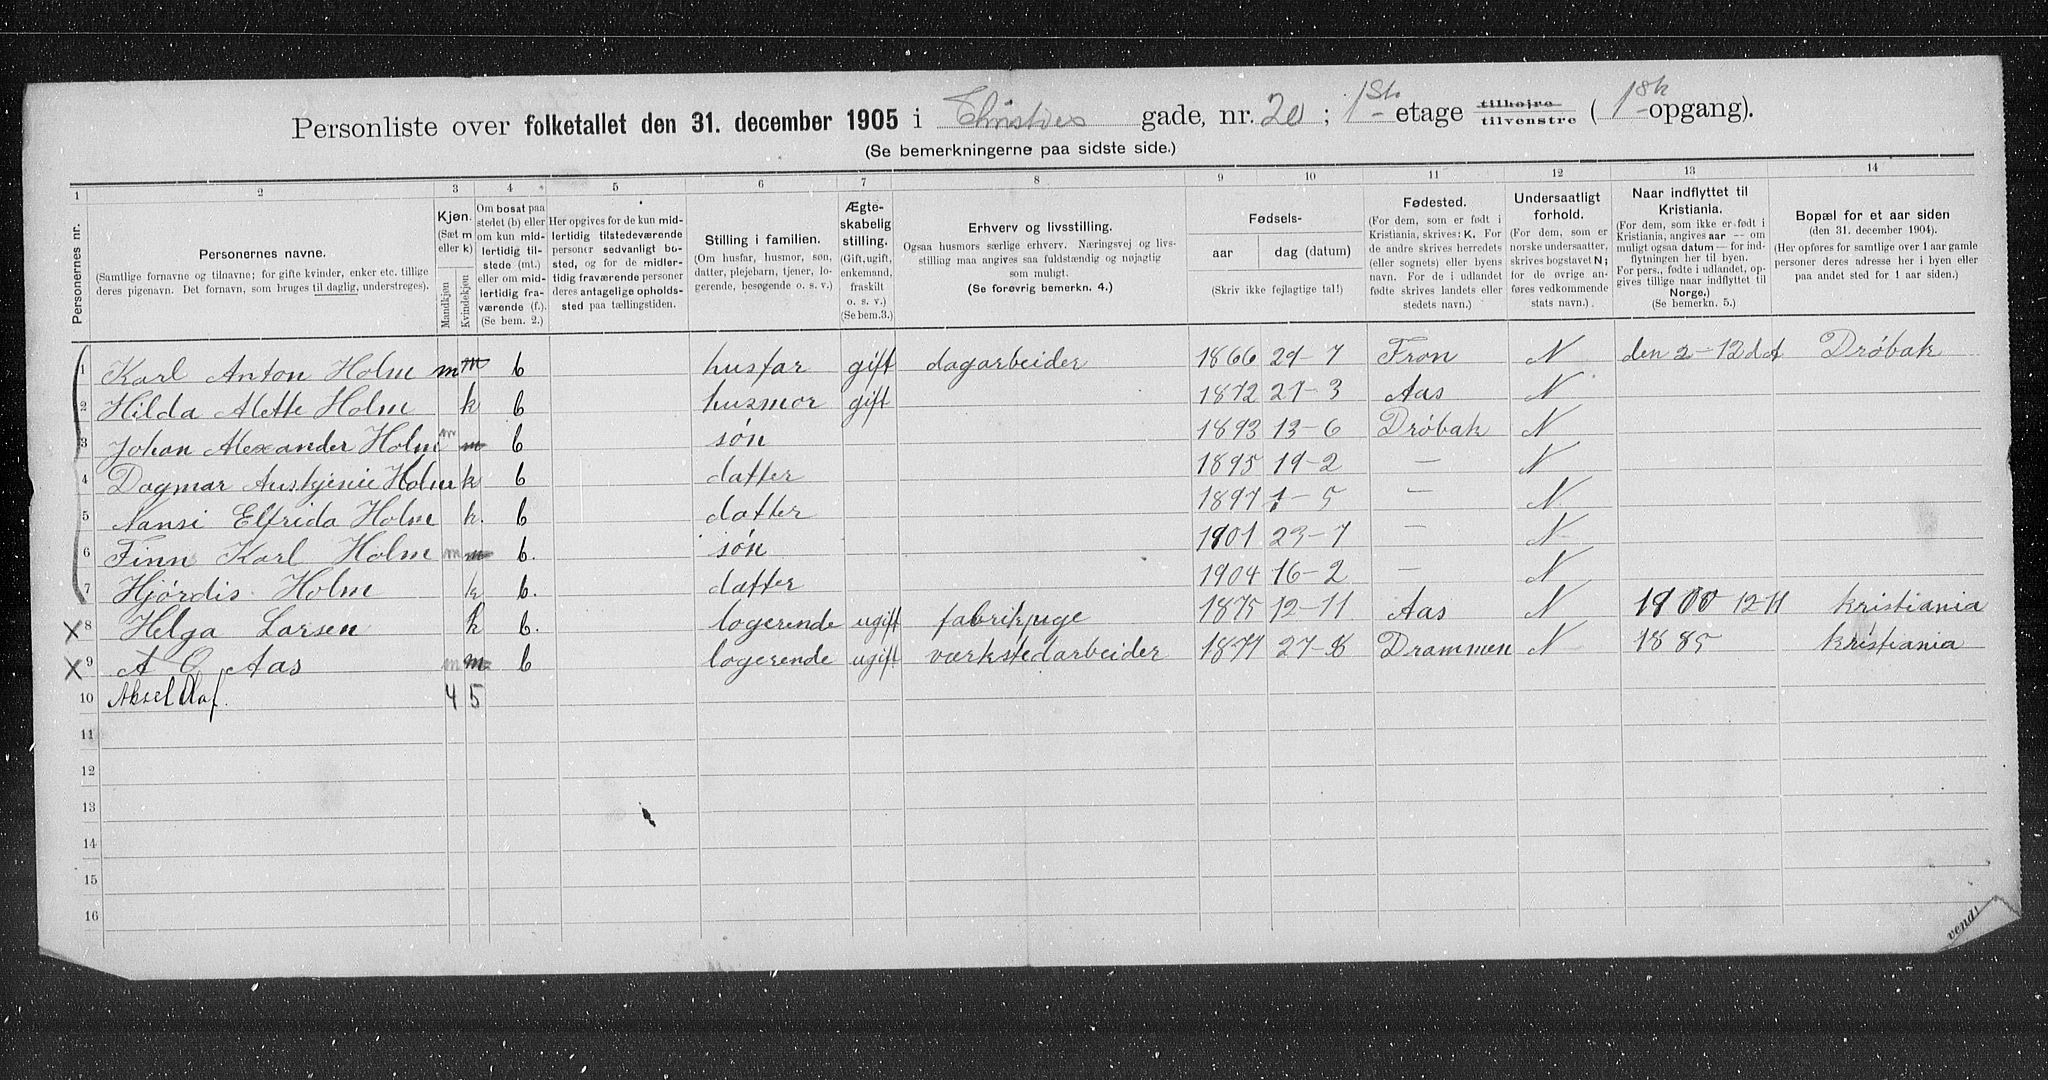 Personliste over folketallet den 31. december 1905 i Christies gade, nr. 20; 1st etage tilhøjre tilvenstre (1ste opgang).
(Se bemerkningerne paa sidste side.)
1 2 3 4 5 6 7 8 9 10 11 12 13 14
Personernes nr.
Personernes navne.
(Samtlige fornavne og tilnavne; for gifte kvinder, enker etc. tillige deres pigenavn. Det fornavn, som bruges til daglig, understreges).
Kjøn. (Sæt m eller k) Mandkjøn Kvindekjøn
Om bosat paa stedet (b) eller om kun midlertidig tilstede (mt.) eller om midlertidig fraværende (f.). (Se bem. 2.)
Her opgives for de kun midlertidig tilstedeværende personer sedvanligt bosted, og for de midlertidig fraværende personer deres antagelige opholdssted paa tællingstiden.
Stilling i familien. (Om husfar, husmor, søn, datter, plejebarn, tjener, logerende, besøgende o. s. v.)
Ægteskabelig stilling. (Gift, ugift, enkemand, fraskilt o. s. v.) (Se bem. 3.)
Erhverv og livsstilling. Ogsaa husmors særlige erhverv. Næringsvej og livsstilling maa angives saa fuldstændig og nøjagtig som muligt. (Se forøvrig bemerkn. 4.)
Fødsels-
aar dag (datum)
(Skriv ikke fejlagtige tal!)
Fødested. (For dem, som er født i Kristiania, skrives: K. For de andre skrives herredets (eller sognets) eller byens navn. For de i udlandet fødte skrives landets eller stedets navn.)
Undersaatligt forhold. (For dem, som er norske undersaatter, skrives bogstavet N; for de øvrige anføres vedkommende stats navn.)
Naar indflyttet til Kristiania. (For dem, som ikke er født i Kristiania, angives aar — om muligt ogsaa datum — for indflytningen her til byen. For pers., fødte i udlandet, opgives tillige naar indflyttet til Norge.) (Se bemerkn. 5.)
Bopæl for et aar siden (den 31. december 1904). (Her opføres for samtlige over 1 aar gamle personer deres adresse her i byen eller paa andet sted for 1 aar siden.)
1 Karl Anton Holm m m b husfar gift dagarbeider 1866 29-7 Fron N den 2-12 d.A Drøbak
2 Hilda Alette Holm k b husmor gift 1872 21-3 Aas N
3 Johan Alexander Holm m m b søn 1893 13-6 Drøbak N
4 Dagmar Holm k b datter 1895 19-2 — N
5 Nansi Elfrida Holm k. b datter 1897 1-5 — N
6 Finn Karl Holm m m b. søn 1901 23-7 — N
7 Hjørdis Holm k b. datter 1904 16-2 — N
8 Helga Larsen k b. logerende ugift fabrikpige 1875 12-11. Aas N 1900 12-11 Kristiania
9 A O Aas m m b logerende ugift værkstedarbeider 1877 27-8 Drammen N 1885 Kristiania
10 Aksel Olaf. 4 5
11
12
13
14
15
16
vend!